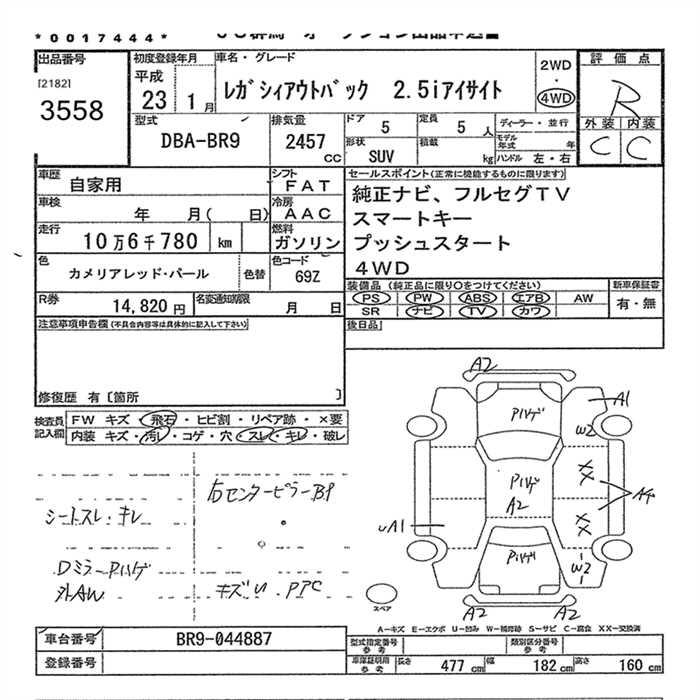 *0017444*
出品番号 初度登録年月 車名・グレード 2WD 評価点
[2182] 平成 レガシィアウトバック 2.5iアイサイト R
3558 23 1月 4WD 外装 内装
型式 排気量 ドア 定員 ディーラー・並行 C C
DBA-BR9 2457 cc 5 5人 モデル年式 年
形状 積載
SUV kg ハンドル 左・右
車歴 自家用 シフト FAT セールスポイント(正常に機能するものに限ります)
車検 年 月( 日) 冷房 AAC 純正ナビ、フルセグTV
スマートキー
走行 10万6千780 km 燃料 ガソリン プッシュスタート
4WD
色 カメリアレッド・パール 色替 色コード 69Z
装備品 (純正品に限り○をつけてください) 新車保証書
R券 14,820円 名変通知期限 月 日 PS PW ABS エアB AW 有・無
SR ナビ TV カワ
注意事項申告欄(不具合内容等は具体的に記入して下さい) 後日品
修復歴 有〔箇所 〕
検査員記入欄 FW キズ・飛石・ヒビ割・リペア跡・×要
内装 キズ・汚レ・コゲ・穴・スレ・キレ・破レ
右センターピラーBP
シートスレ・キレ
Dミラー Pハゲ
外AW
キズU PPC
A2
A1
Pハゲ
W2
XX
Pハゲ
A2
Aヶ
XX
UA1
Pハゲ
W2
A2 A2
スペア
A-キズ E-エクボ U-凹み W-補修跡 S-サビ C-腐食 XX-交換済
車台番号 BR9-044887 型式指定番号 参考 類別区分番号 参考
登録番号 車庫証明用 参考 長さ 477cm 幅 182cm 高さ 160cm